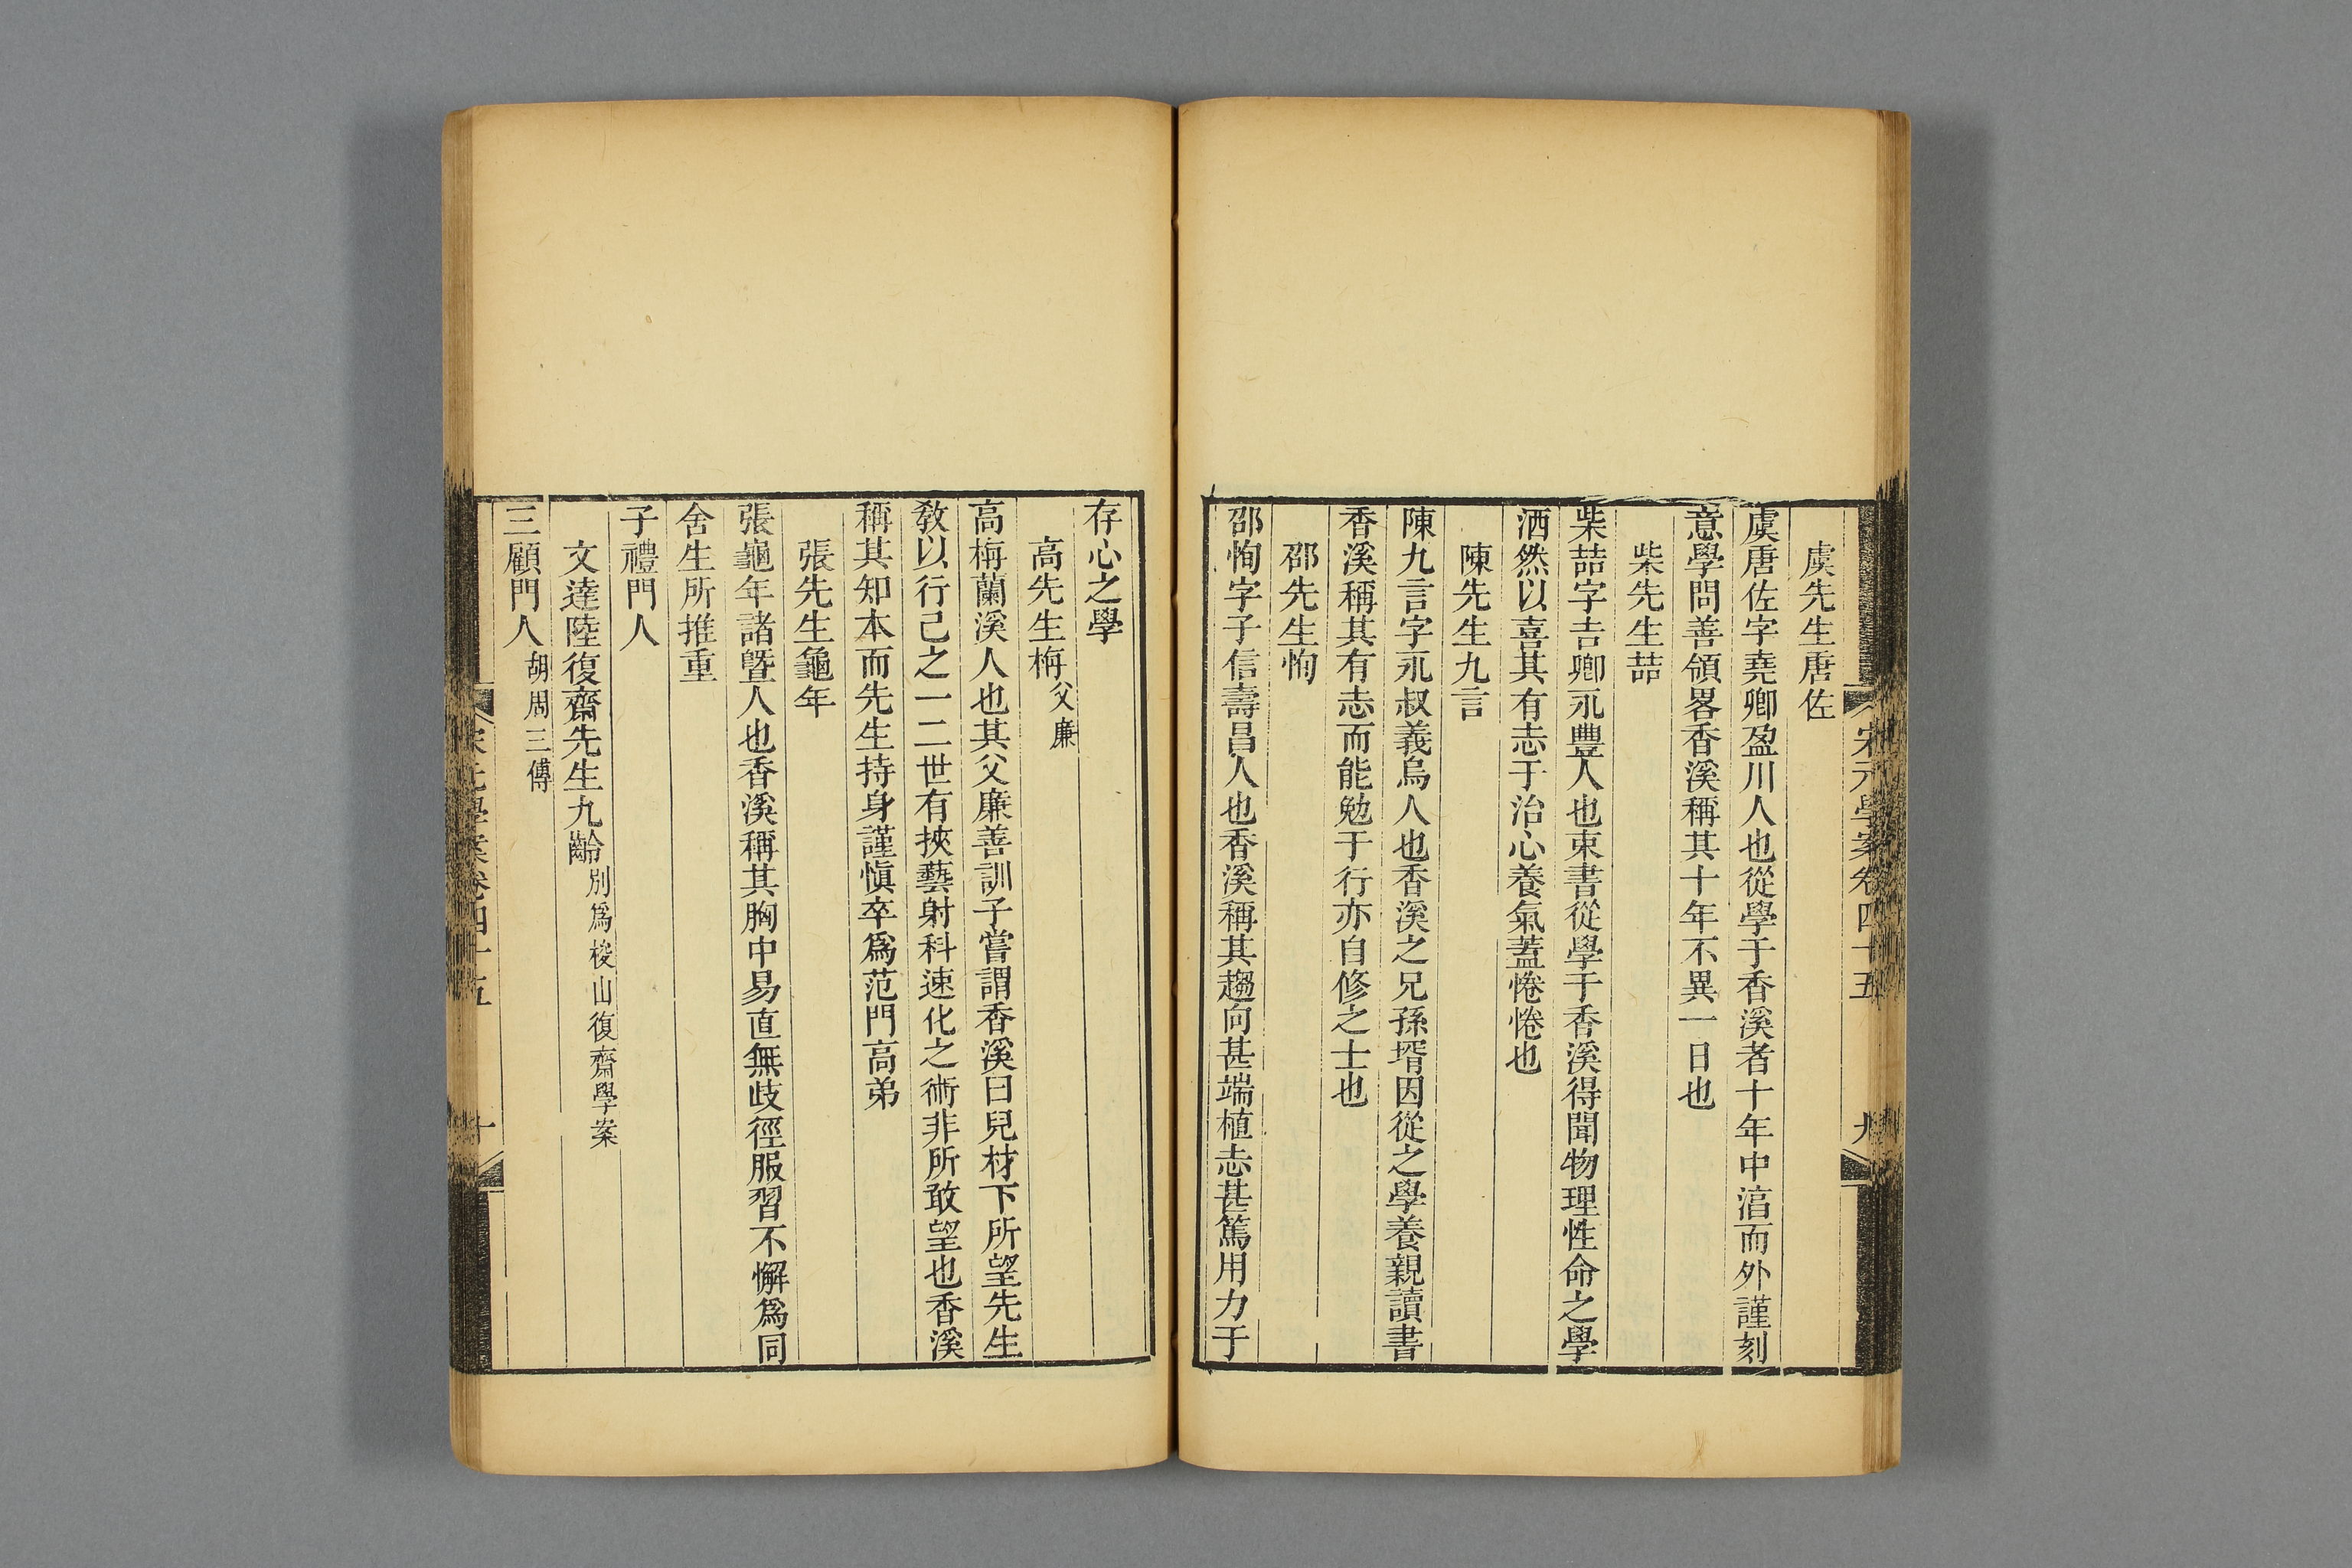 宋元學案卷四十五 九
虞先生唐佐
虞唐佐字堯卿盈川人也從學于香溪者十年中㴞而外謹刻
意學問善領畧香溪稱其十年不異一日也
柴先生喆
柴喆字吉卿永豐人也束書從學于香溪得聞物理性命之學
洒然以喜其有志于治心養氣蓋惓惓也
陳先生九言
陳九言字永叔義烏人也香溪之兄孫壻因從之學養親讀書
香溪稱其有志而能勉于行亦自修之士也
邵先生恂
邵恂字子信壽昌人也香溪稱其趨向甚端植志甚篤用力于
存心之學
高先生栴父廉
高栴蘭溪人也其父廉善訓子嘗謂香溪曰兒材下所望先生
敎以行己之一二世有挾藝射科速化之術非所敢望也香溪
稱其知本而先生持身謹愼卒爲范門高弟
張先生龜年
張龜年諸曁人也香溪稱其胸中易直無歧徑服習不懈爲同
舍生所推重
子禮門人
文達陸復齋先生九齡別爲梭山復齋學案
三顧門人胡周三傳
宋元學案卷四十五 十